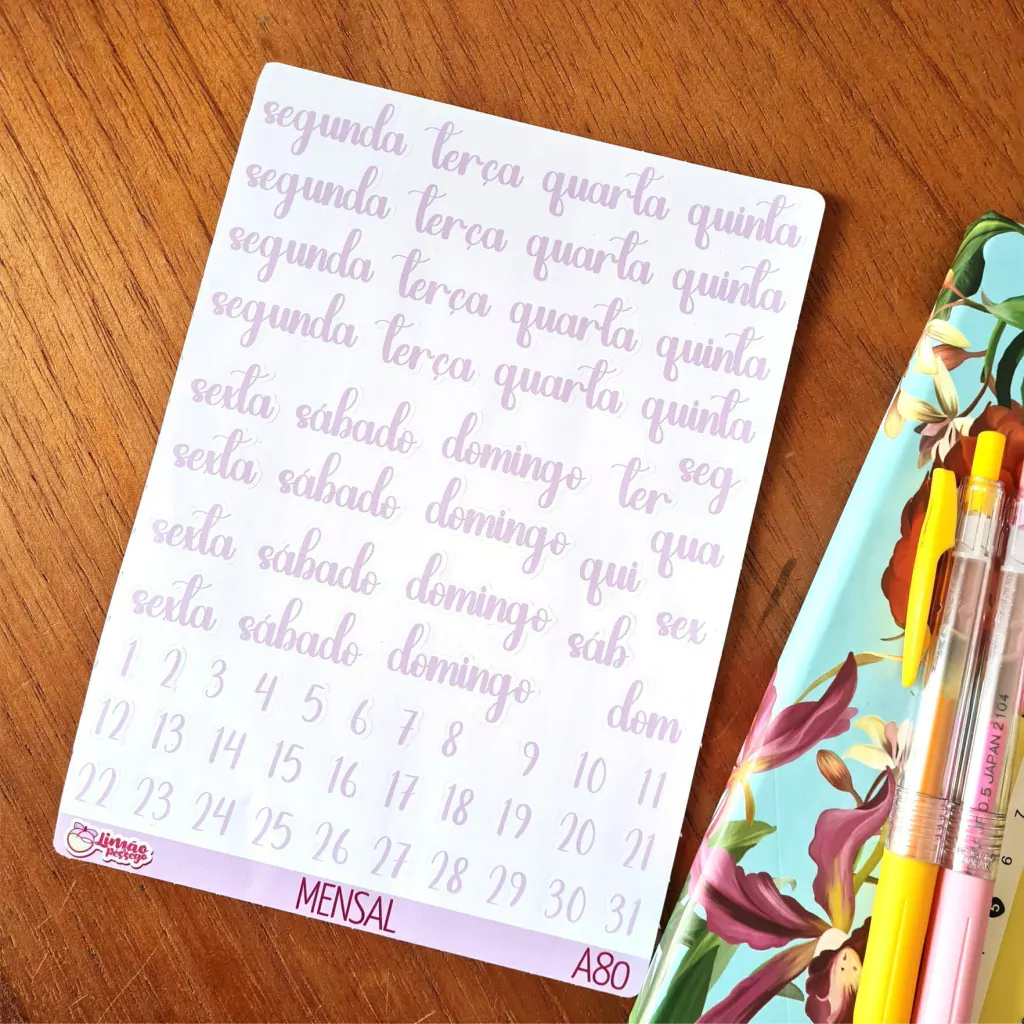 segunda terça quarta quinta
segunda terça quarta quinta
segunda terça quarta quinta
segunda terça quarta quinta
sexta sábado domingo ter seg
sexta sábado domingo qui qua
sexta sábado domingo sáb sex
sexta sábado domingo dom
1 2 3 4 5 6 7 8 9 10 11
12 13 14 15 16 17 18 19 20 21
22 23 24 25 26 27 28 29 30 31
Limão Pessego
MENSAL
A80
0.5 JAPAN 2104
7
6
5